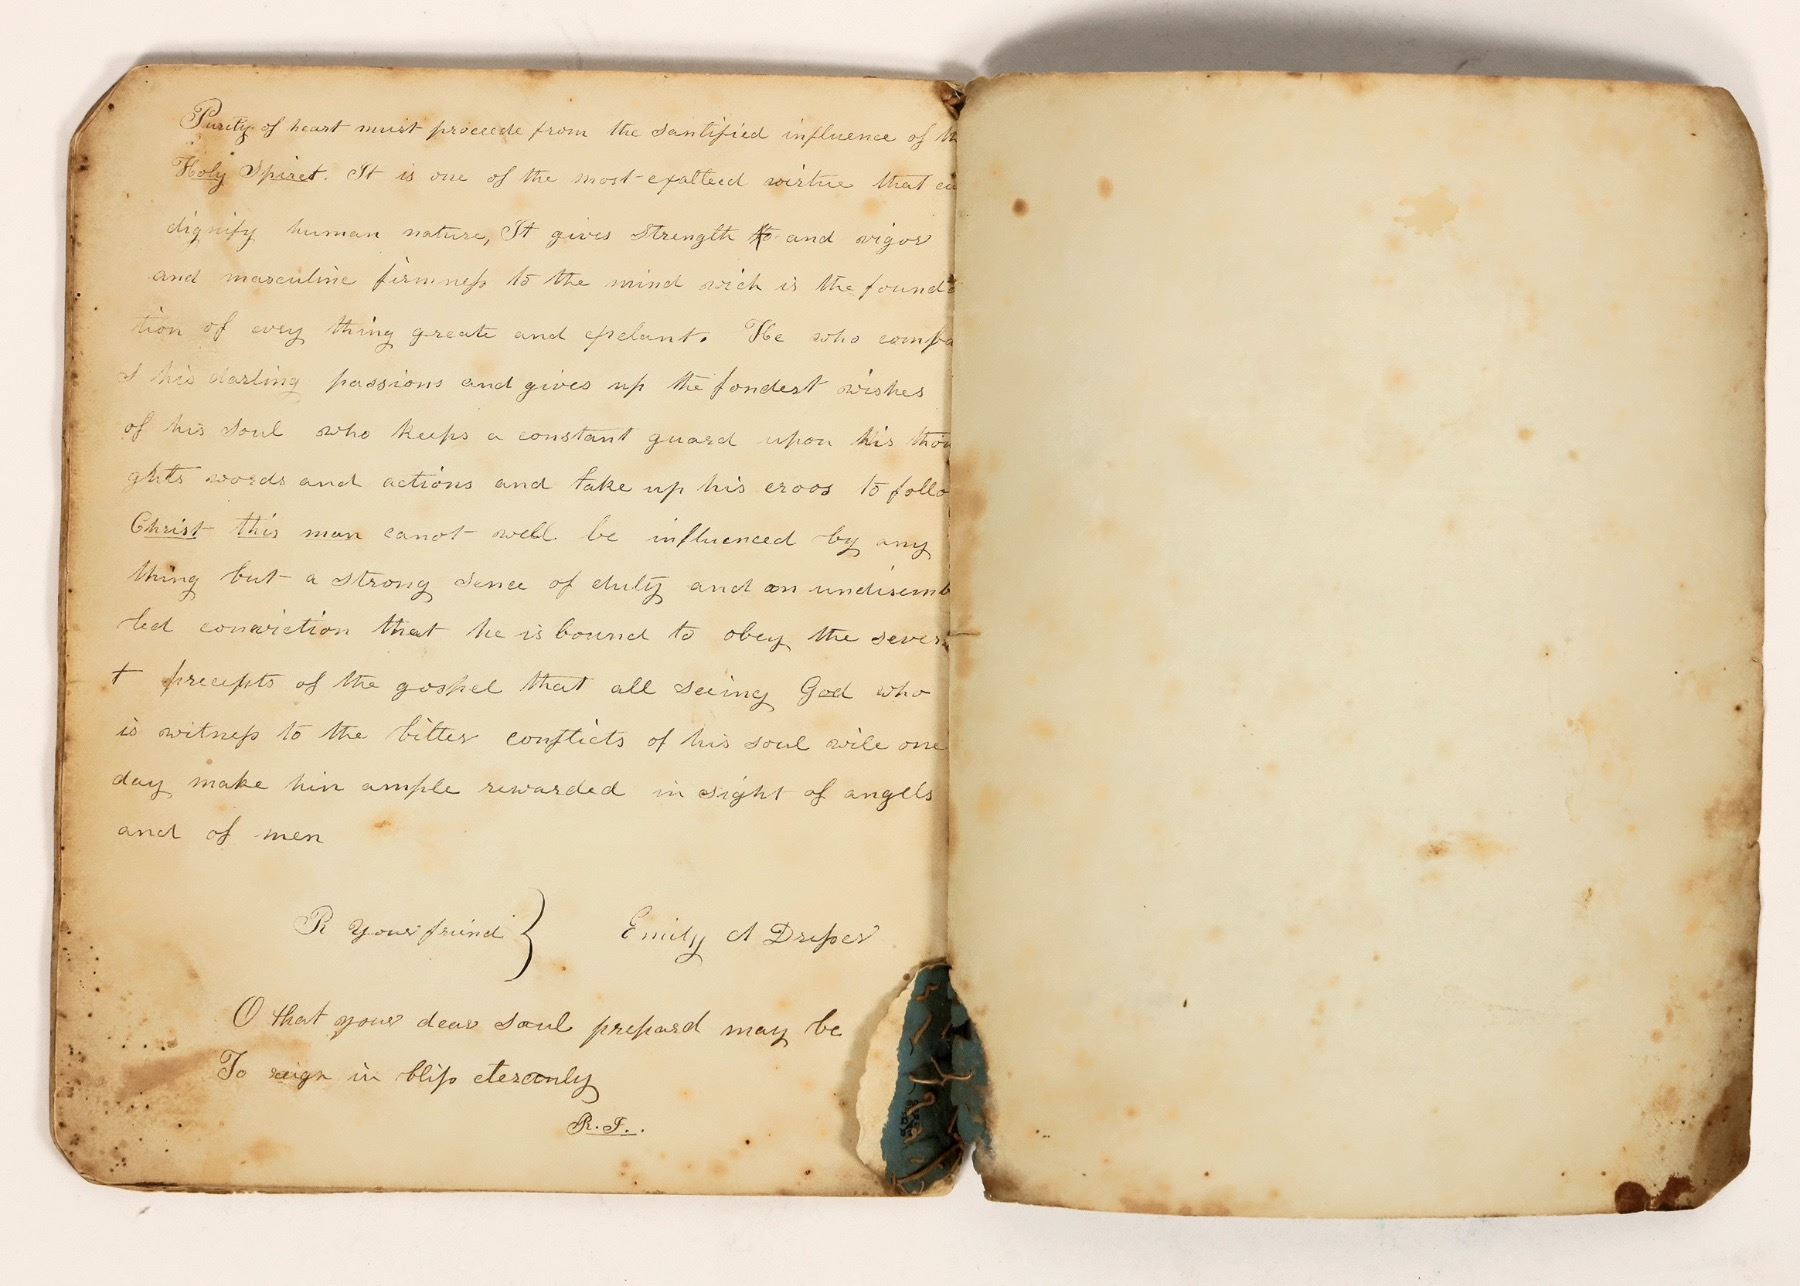 Purity of heart must proceede from the santified influence of th
Holy Spiret. It is one of the most exalteed virtue that ca
dignify human nature, It gives strength to and vigor
and masculine firmness to the mind wich is the founda
tion of evey thing greate and exelant. He who
his darling passions and gives up the fondest wishes
of his soul who keeps a constant guard upon his thou
ghts words and actions and take up his cross to follo
Christ this man canot well be influenced by any
thing but a strong sence of duty and an undisemb
led conviction that he is bound to obey the severs
t precepts of the gospel that all seeing God who
is witness to the bitter conflicts of his soul wile one
day make hin ample rewarded in sight of angels
and of men
R Your friend } Emily A Dreper
O that your dear soul prepard may be
To reign in bliss